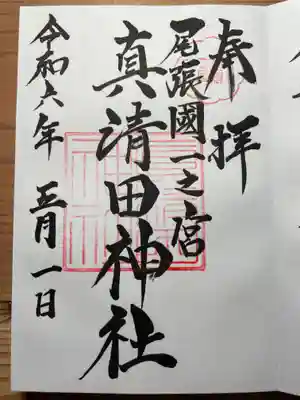 奉拝
尾張國一之宮
真清田神社
令和六年 正月一日